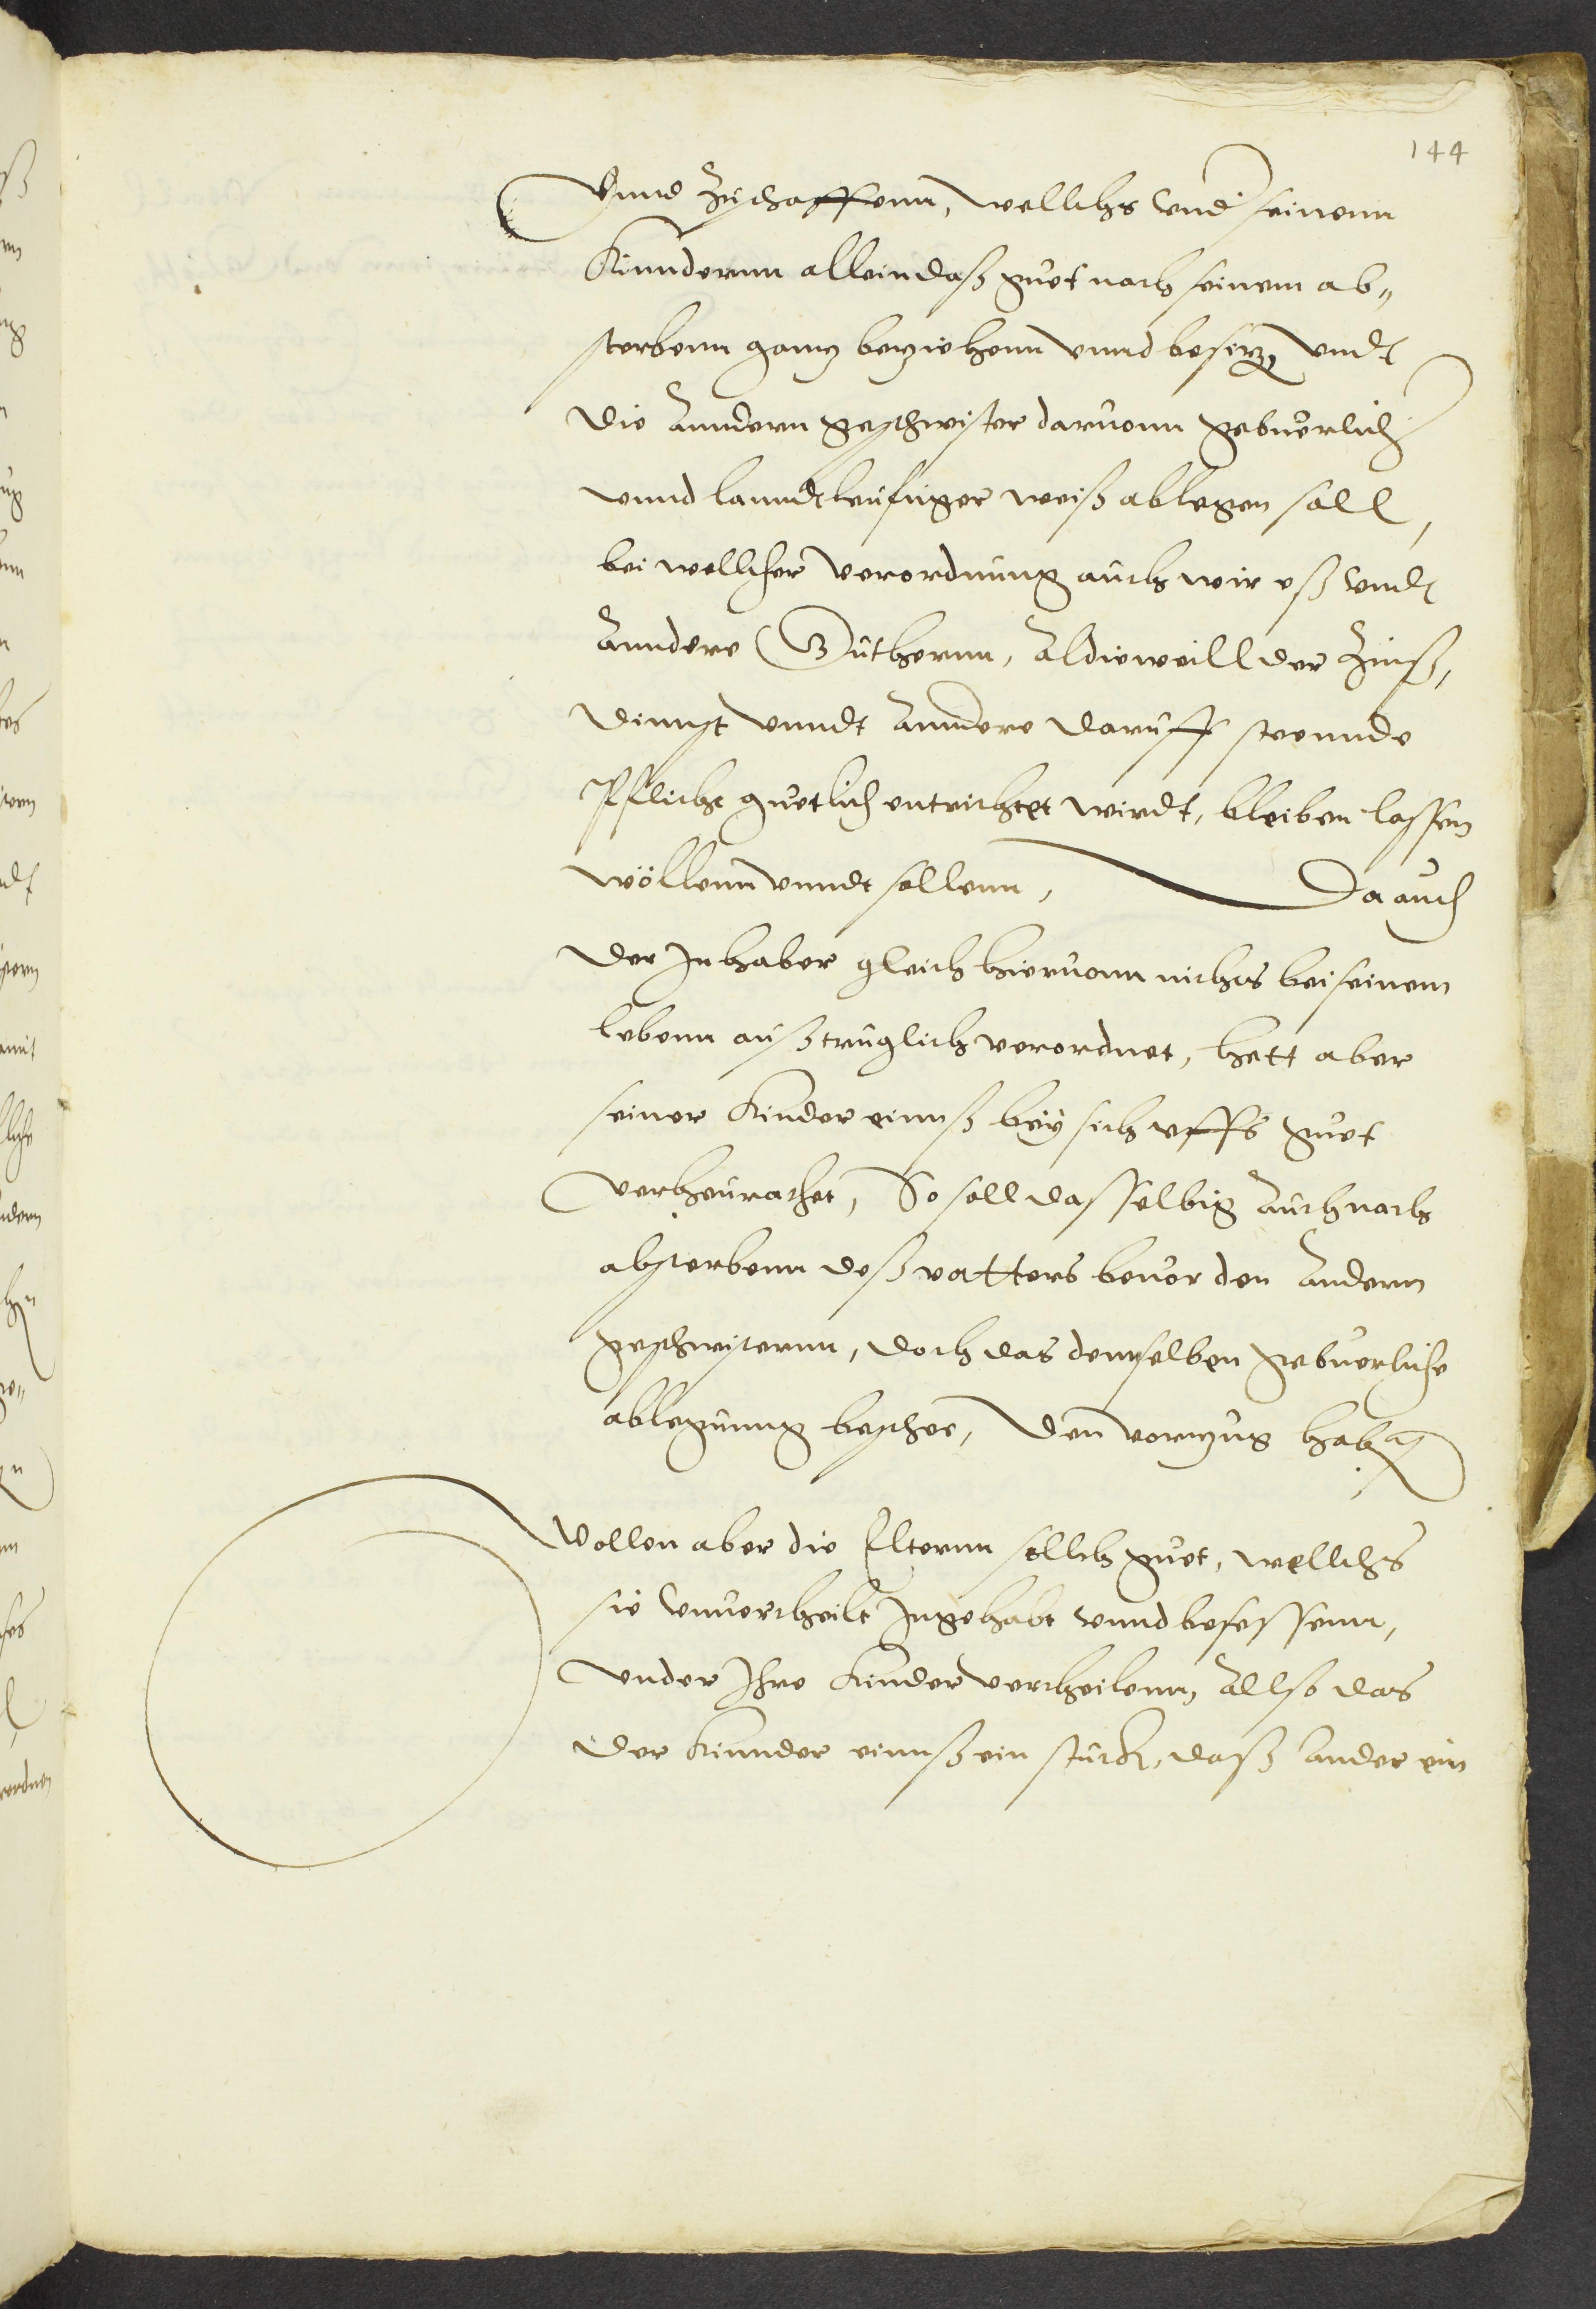 144
Vnnd Zuschaffenn, wellichs vnder seinenn
Kinndernn allein daß guet nach seinem ab„
sterbenn gantz beziehenn vnnd besitzen vndt
die Anndern geschwister daruonn gebuerlich
vnnd lanndtleufiger weiß ablegen soll,
bei wellicher verordnung auch wir eß vndt
Anndere Güthernn, Aldieweill der Zinß,
dinnst vnndt Anndere daruff steennde
Pflicht guetlich entrichtet wirdt, bleiben lassen
wöllenn vnndt sollenn, Da auch
der Inhaber gleich hieruonn nichts bei seinem
lebenn außtruglich verordnet, hett aber
seiner Kinder einnß bey sich vffs guet
verheurathet, So soll dasselbig Auch nach
absterbenn deß vatters beuor den Andern
geschwisternn, doch das denselben gebuerliche
ablegunng beschee, den vorzug haben
Wollen aber die Elternn sollich guet, wellichs
sie vnuertheilt Ingehabt vnnd besessenn,
vnder Ihre Kinder vertheilenn, Allso das
der Kinnder einnß ein stuckh, daß Ander ein